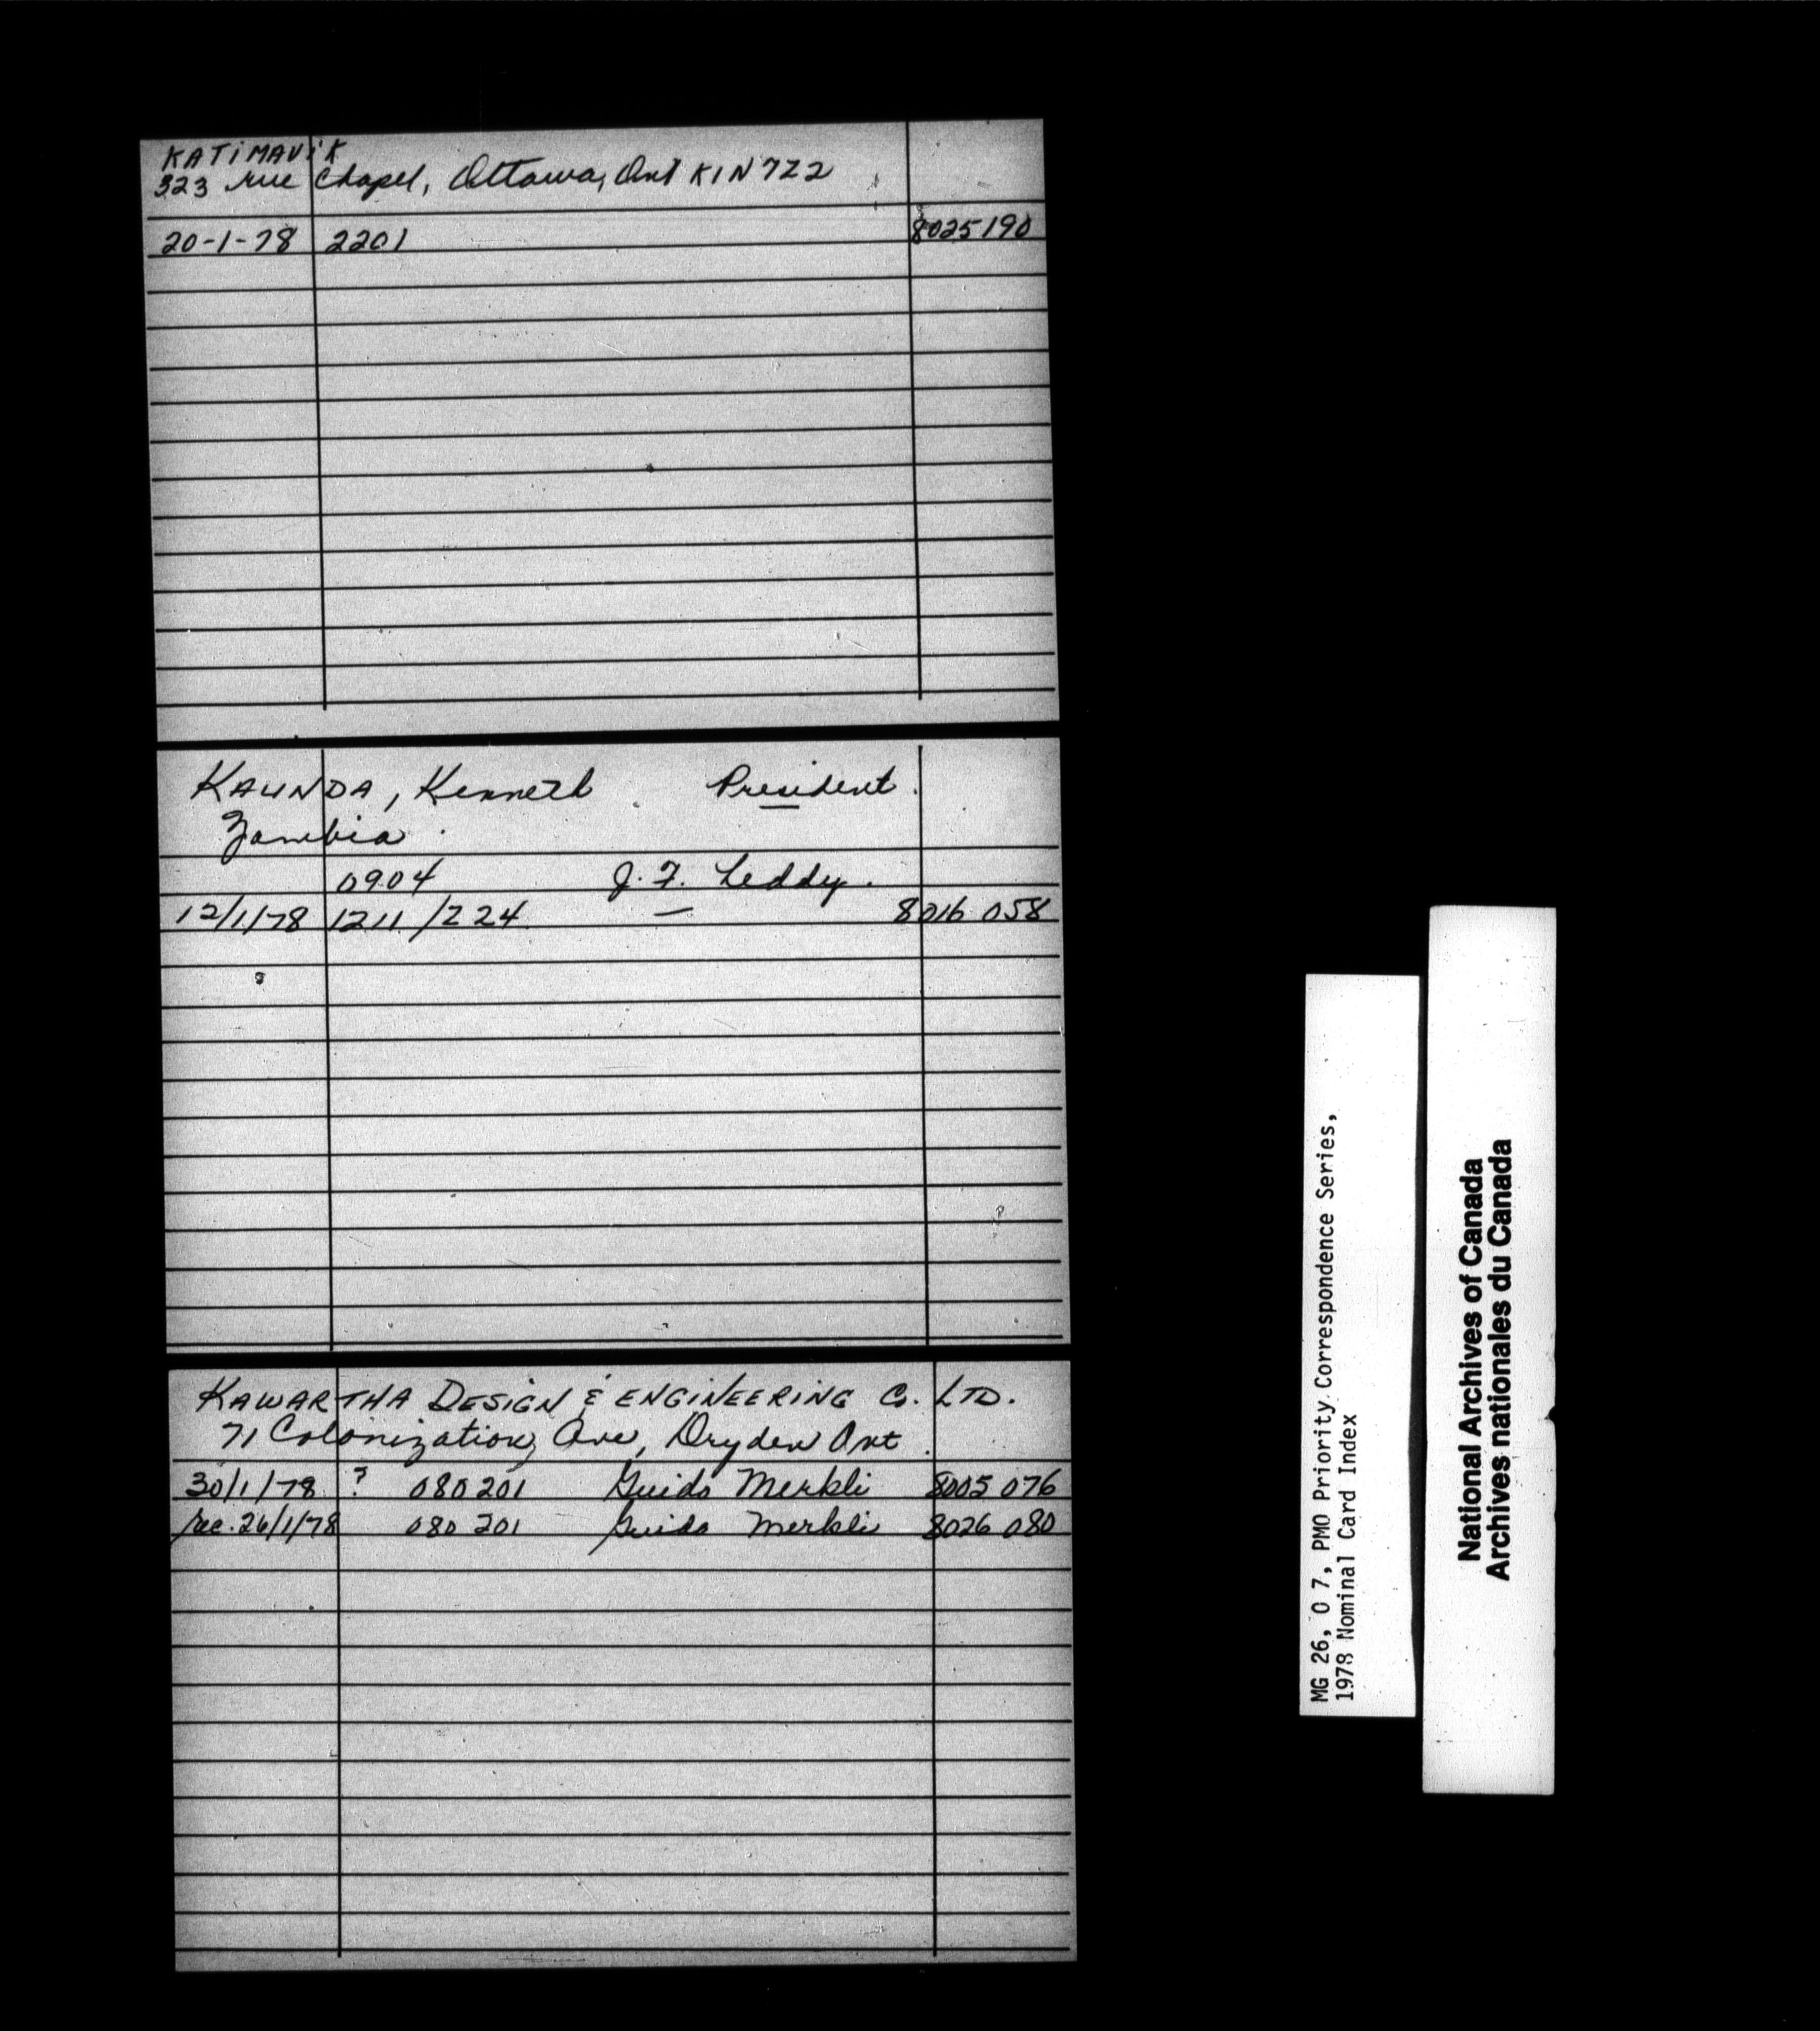 KATIMAVIK
323 rue Chapel, Ottawa, Ont K1N 7Z2
20-1-78 2201 8025190
KAUNDA, Kenneth President.
Zambia.
0904 J. F. Leddy.
12/1/78 1211/Z24 — 8016 058
KAWARTHA DESIGN & ENGINEERING Co. LTD.
71 Colonization Ave, Dryden Ont.
30/1/78 ? 080201 Guido Merkli 8005 076
rec. 26/1/78 080 201 Guido Merkli 8026 080
MG 26, O 7, PMO Priority Correspondence Series,
1978 Nominal Card Index
National Archives of Canada
Archives nationales du Canada